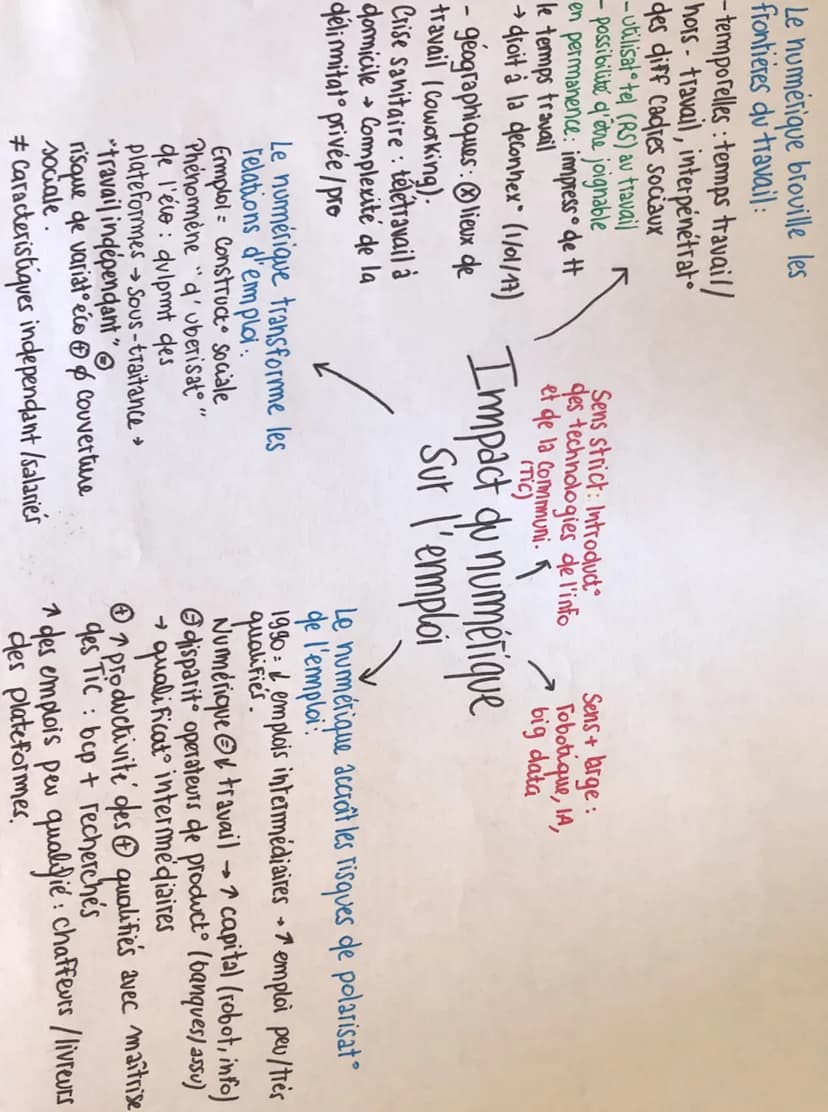 Le numérique brouille les
frontières du travail :
- temporelles : temps travail/
hors-travail, interpénétrat°
des diff cadres sociaux
- utilisat° tel (RS) au travail
- possibilité d'être joignable
en permanence : impress° de tt
le temps travail
→ droit à la déconnex° (1/01/17)
- géographiques : ⊗ lieux de
travail (coworking).
Crise sanitaire : télétravail à
domicile → complexité de la
délimitat° privée/pro
Sens strict : Introduct°
des technologies de l'info
et de la communi.
(TIC)
Sens + large :
robotique, IA,
big data
Impact du numérique
sur l'emploi
Le numérique transforme les
relations d'emploi :
Emploi = construct° sociale
Phénomène "d'uberisat°"
de l'éco : dvlpmt des
plateformes → sous-traitance →
"travail indépendant" ⊖
risque de variat° éco ⊕ ∅ couverture
sociale.
≠ caracteristiques independant/salariés
Le numérique accroît les risques de polarisat°
de l'emploi :
1990 = ↓ emplois intermédiaires → ↑ emploi peu/très
qualifiés.
Numérique ⊖↓ travail → ↑ capital (robot, info)
⊖ disparit° operateurs de product° (banques/assu)
→ qualificat° intermédiaires
⊕ ↑ productivité des ⊕ qualifiés avec maîtrise
des TIC : bcp + recherchés
↑ des emplois peu qualifié : chaffeurs/livreurs
des plateformes.